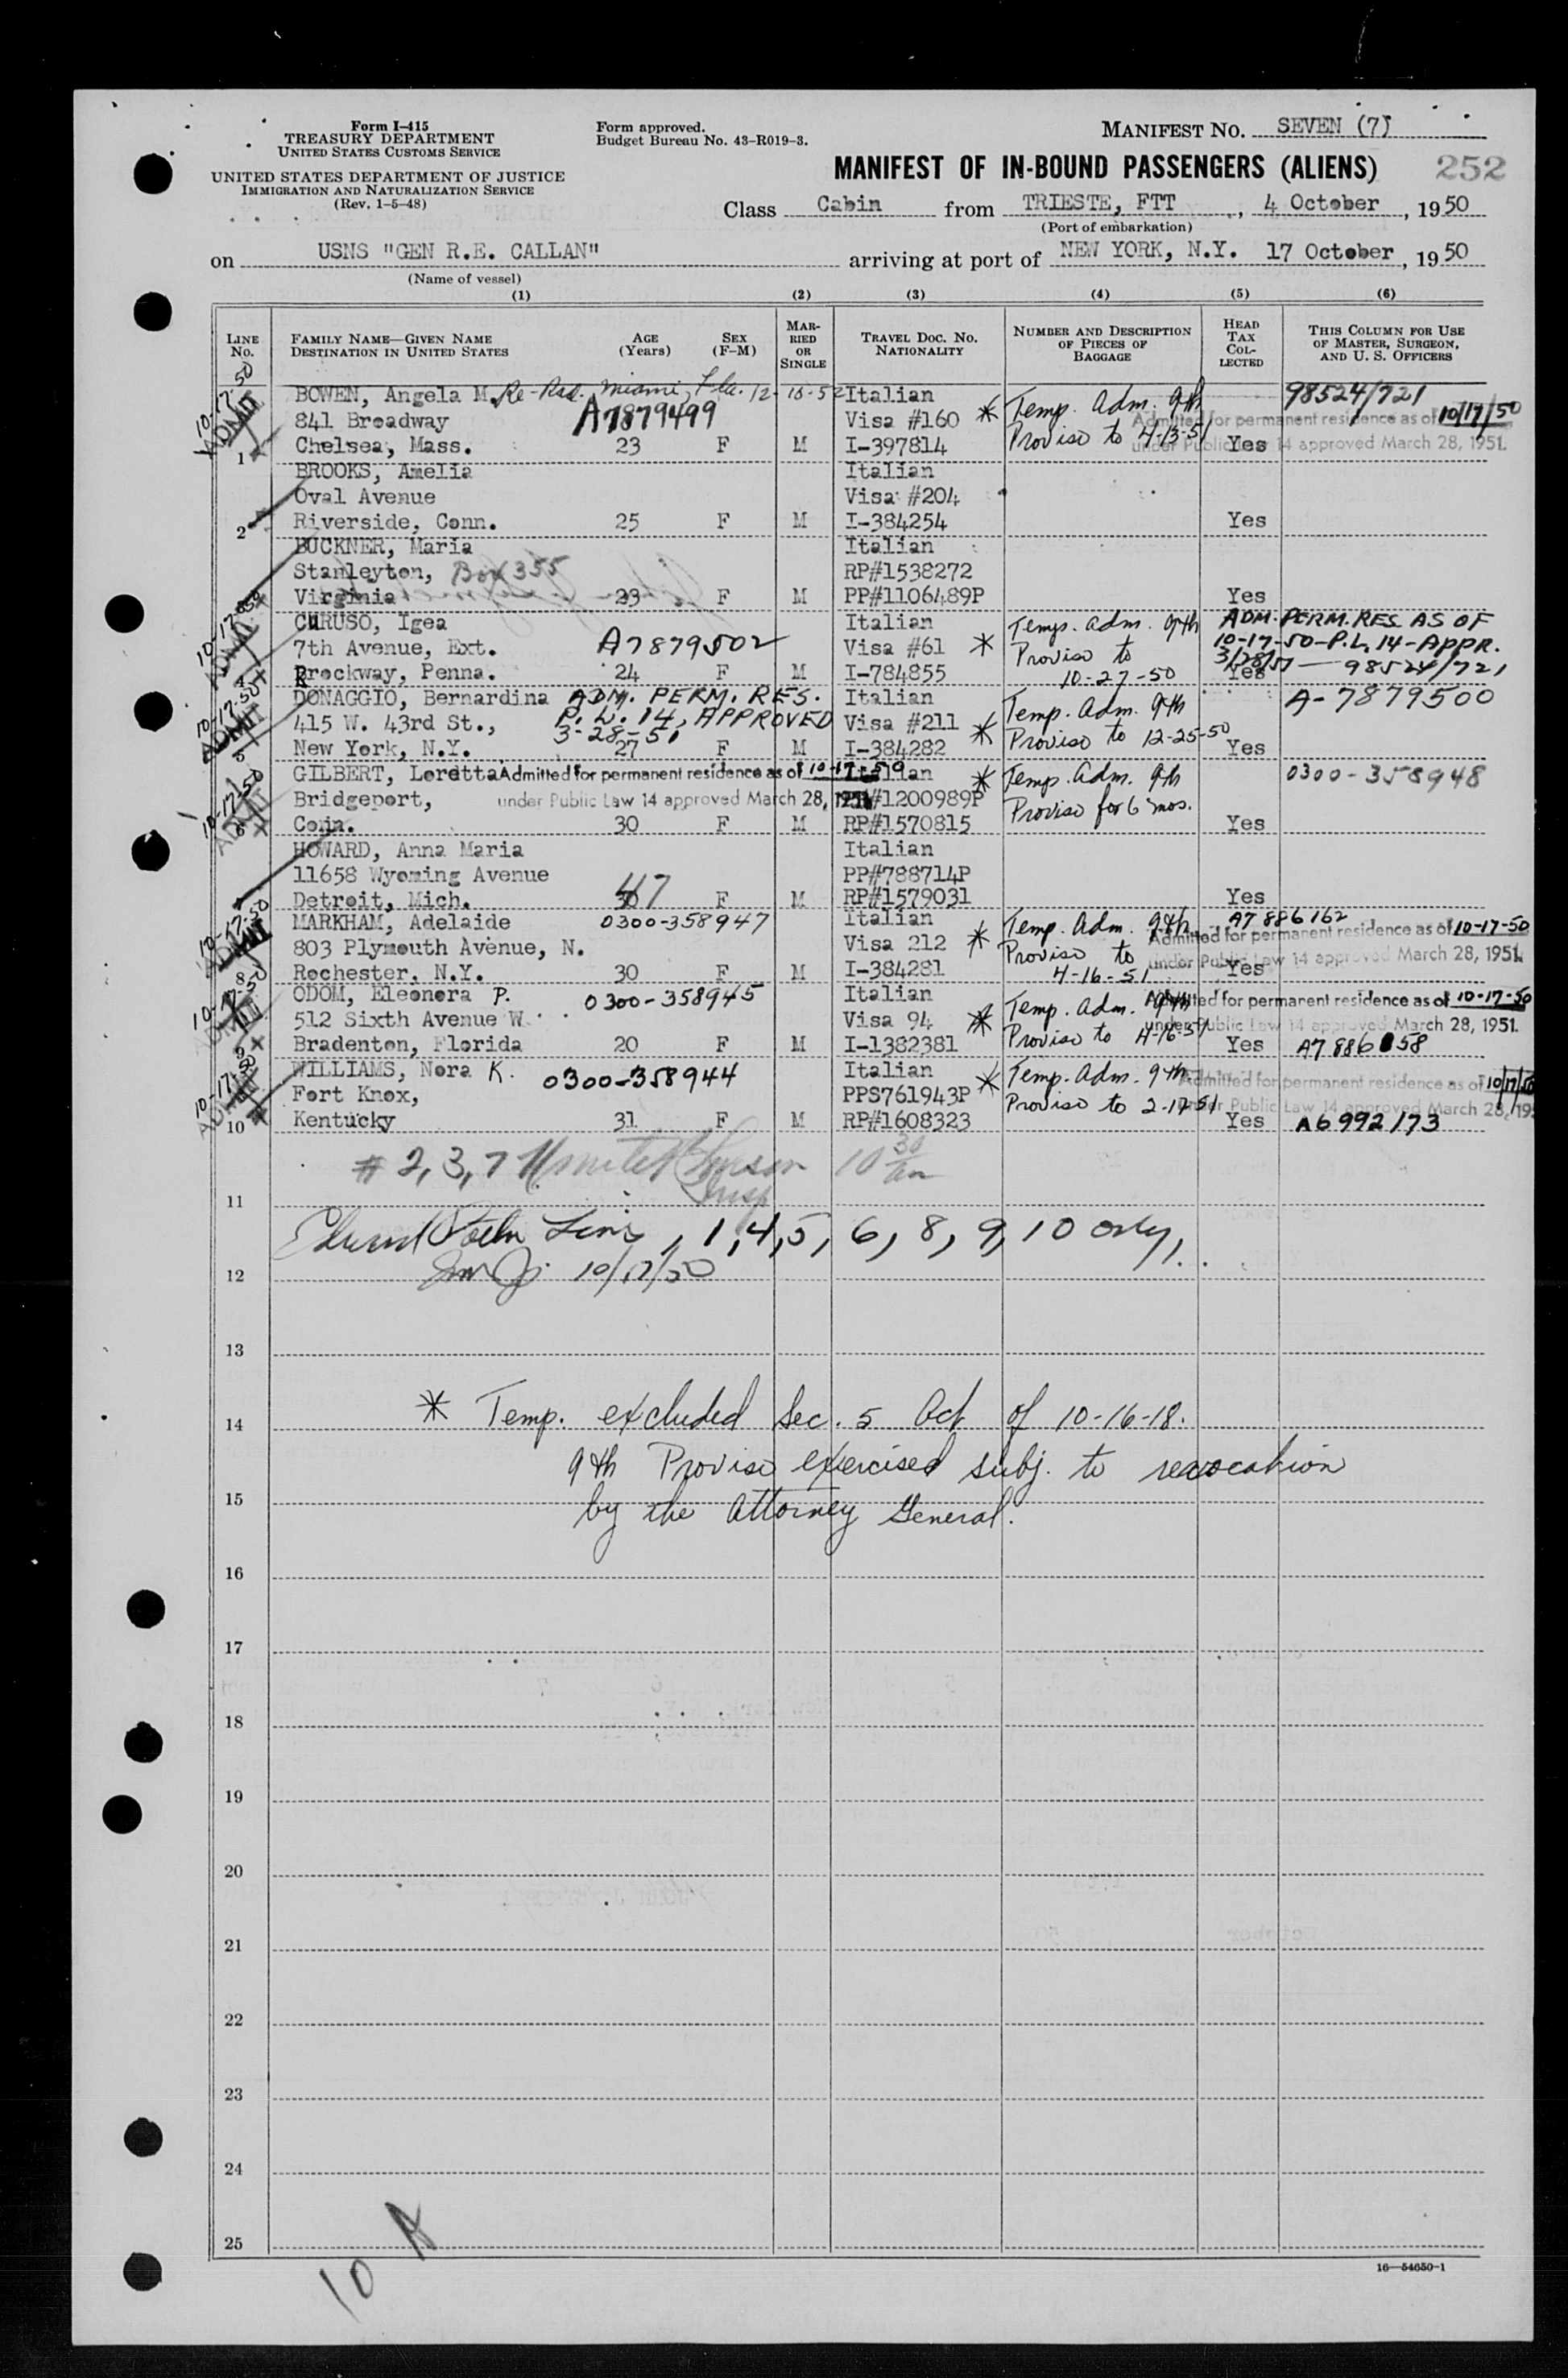 Form I-415
TREASURY DEPARTMENT
UNITED STATES CUSTOMS SERVICE
UNITED STATES DEPARTMENT OF JUSTICE
IMMIGRATION AND NATURALIZATION SERVICE
(Rev. 1-5-48)
Form approved.
Budget Bureau No. 43-R019-3.
MANIFEST NO. SEVEN (7)
MANIFEST OF IN-BOUND PASSENGERS (ALIENS) 252
Class Cabin from TRIESTE, FTT, 4 October, 1950
(Port of embarkation)
on USNS "GEN R.E. CALLAN" arriving at port of NEW YORK, N.Y. 17 October, 1950
(Name of vessel)
(1) (2) (3) (4) (5) (6)
LINE NO.
FAMILY NAME—GIVEN NAME
DESTINATION IN UNITED STATES
AGE (Years)
SEX (F-M)
MARRIED OR SINGLE
TRAVEL DOC. NO.
NATIONALITY
NUMBER AND DESCRIPTION OF PIECES OF BAGGAGE
HEAD TAX COLLECTED
THIS COLUMN FOR USE OF MASTER, SURGEON, AND U. S. OFFICERS
10-17-50 ADMIT
BOWEN, Angela M. Miami, Fla. 12-18-52 Italian Temp. Adm. 9th 98524/721
841 Broadway A7879499 Visa #160 * Proviso to 4-13-51 Admitted for permanent residence as of 10/17/50
1 Chelsea, Mass. 23 F M I-397814 Yes under Public Law 14 approved March 28, 1951.
BROOKS, Amelia Italian
Oval Avenue Visa #204
2 Riverside, Conn. 25 F M I-384254 Yes
BUCKNER, Maria Italian
Stanleyton, Box 355 RP#1538272
3 Virginia 23 F M PP#1106489P Yes
10-17-50 ADMIT
CARUSO, Igea Italian Temp. Adm. 9th ADM. PERM. RES. AS OF
7th Avenue, Ext. A7879502 Visa #61 * Proviso to 10-17-50-P.L. 14-APPR.
4 Brockway, Penna. 24 F M I-784855 10-27-50 Yes 3/28/51 — 98524/721
10-17-50 ADMIT
DONAGGIO, Bernardina ADM. PERM. RES. Italian Temp. Adm. 9th A-7879500
415 W. 43rd St., P.L. 14, APPROVED Visa #211 * Proviso to 12-25-50
5 New York, N.Y. 3-28-51 27 F M I-384282 Yes
10-17-50 ADMIT
GILBERT, Loretta Admitted for permanent residence as of 10-17-50 Italian * Temp. Adm. 9th 0300-358948
Bridgeport, under Public Law 14 approved March 28, 1951 PP#1200989P Proviso for 6 mos.
6 Conn. 30 F M RP#1570815 Yes
HOWARD, Anna Maria Italian
11658 Wyoming Avenue PP#788714P
7 Detroit, Mich. F M RP#1579031 Yes
10-17-50 ADMIT
MARKHAM, Adelaide 0300-358947 Italian Temp. Adm. 9th A7886162
803 Plymouth Avenue, N. Visa 212 * Proviso to Admitted for permanent residence as of 10-17-50
8 Rochester, N.Y. 30 F M I-384281 4-16-51 Yes under Public Law 14 approved March 28, 1951.
10-17-50 ADMIT
ODOM, Eleonora P. 0300-358945 Italian Temp. Adm. 9th Admitted for permanent residence as of 10-17-50
512 Sixth Avenue W. Visa 94 * Proviso to 4-16-51 under Public Law 14 approved March 28, 1951.
9 Bradenton, Florida 20 F M I-1382381 Yes
10-17-50 ADMIT
WILLIAMS, Nora K. 0300-358944 Italian Temp. Adm. 9th Admitted for permanent residence as of 10/17/50
Fort Knox, PPS761943P * Proviso to under Public Law 14 approved March 28, 195
10 Kentucky 31 F M RP#1608323 Yes A6992173
# 2, 3, 7 10 30 am
Insp
11
1, 4, 5, 6, 8, 9, 10 only.
10/17/50
12
13
* Temp. excluded Sec. 5 Act of 10-16-18.
14
9th Proviso exercised subj. to revocation
15
by the Attorney General.
16
17
18
19
20
21
22
23
24
25
10 A
16—54650-1